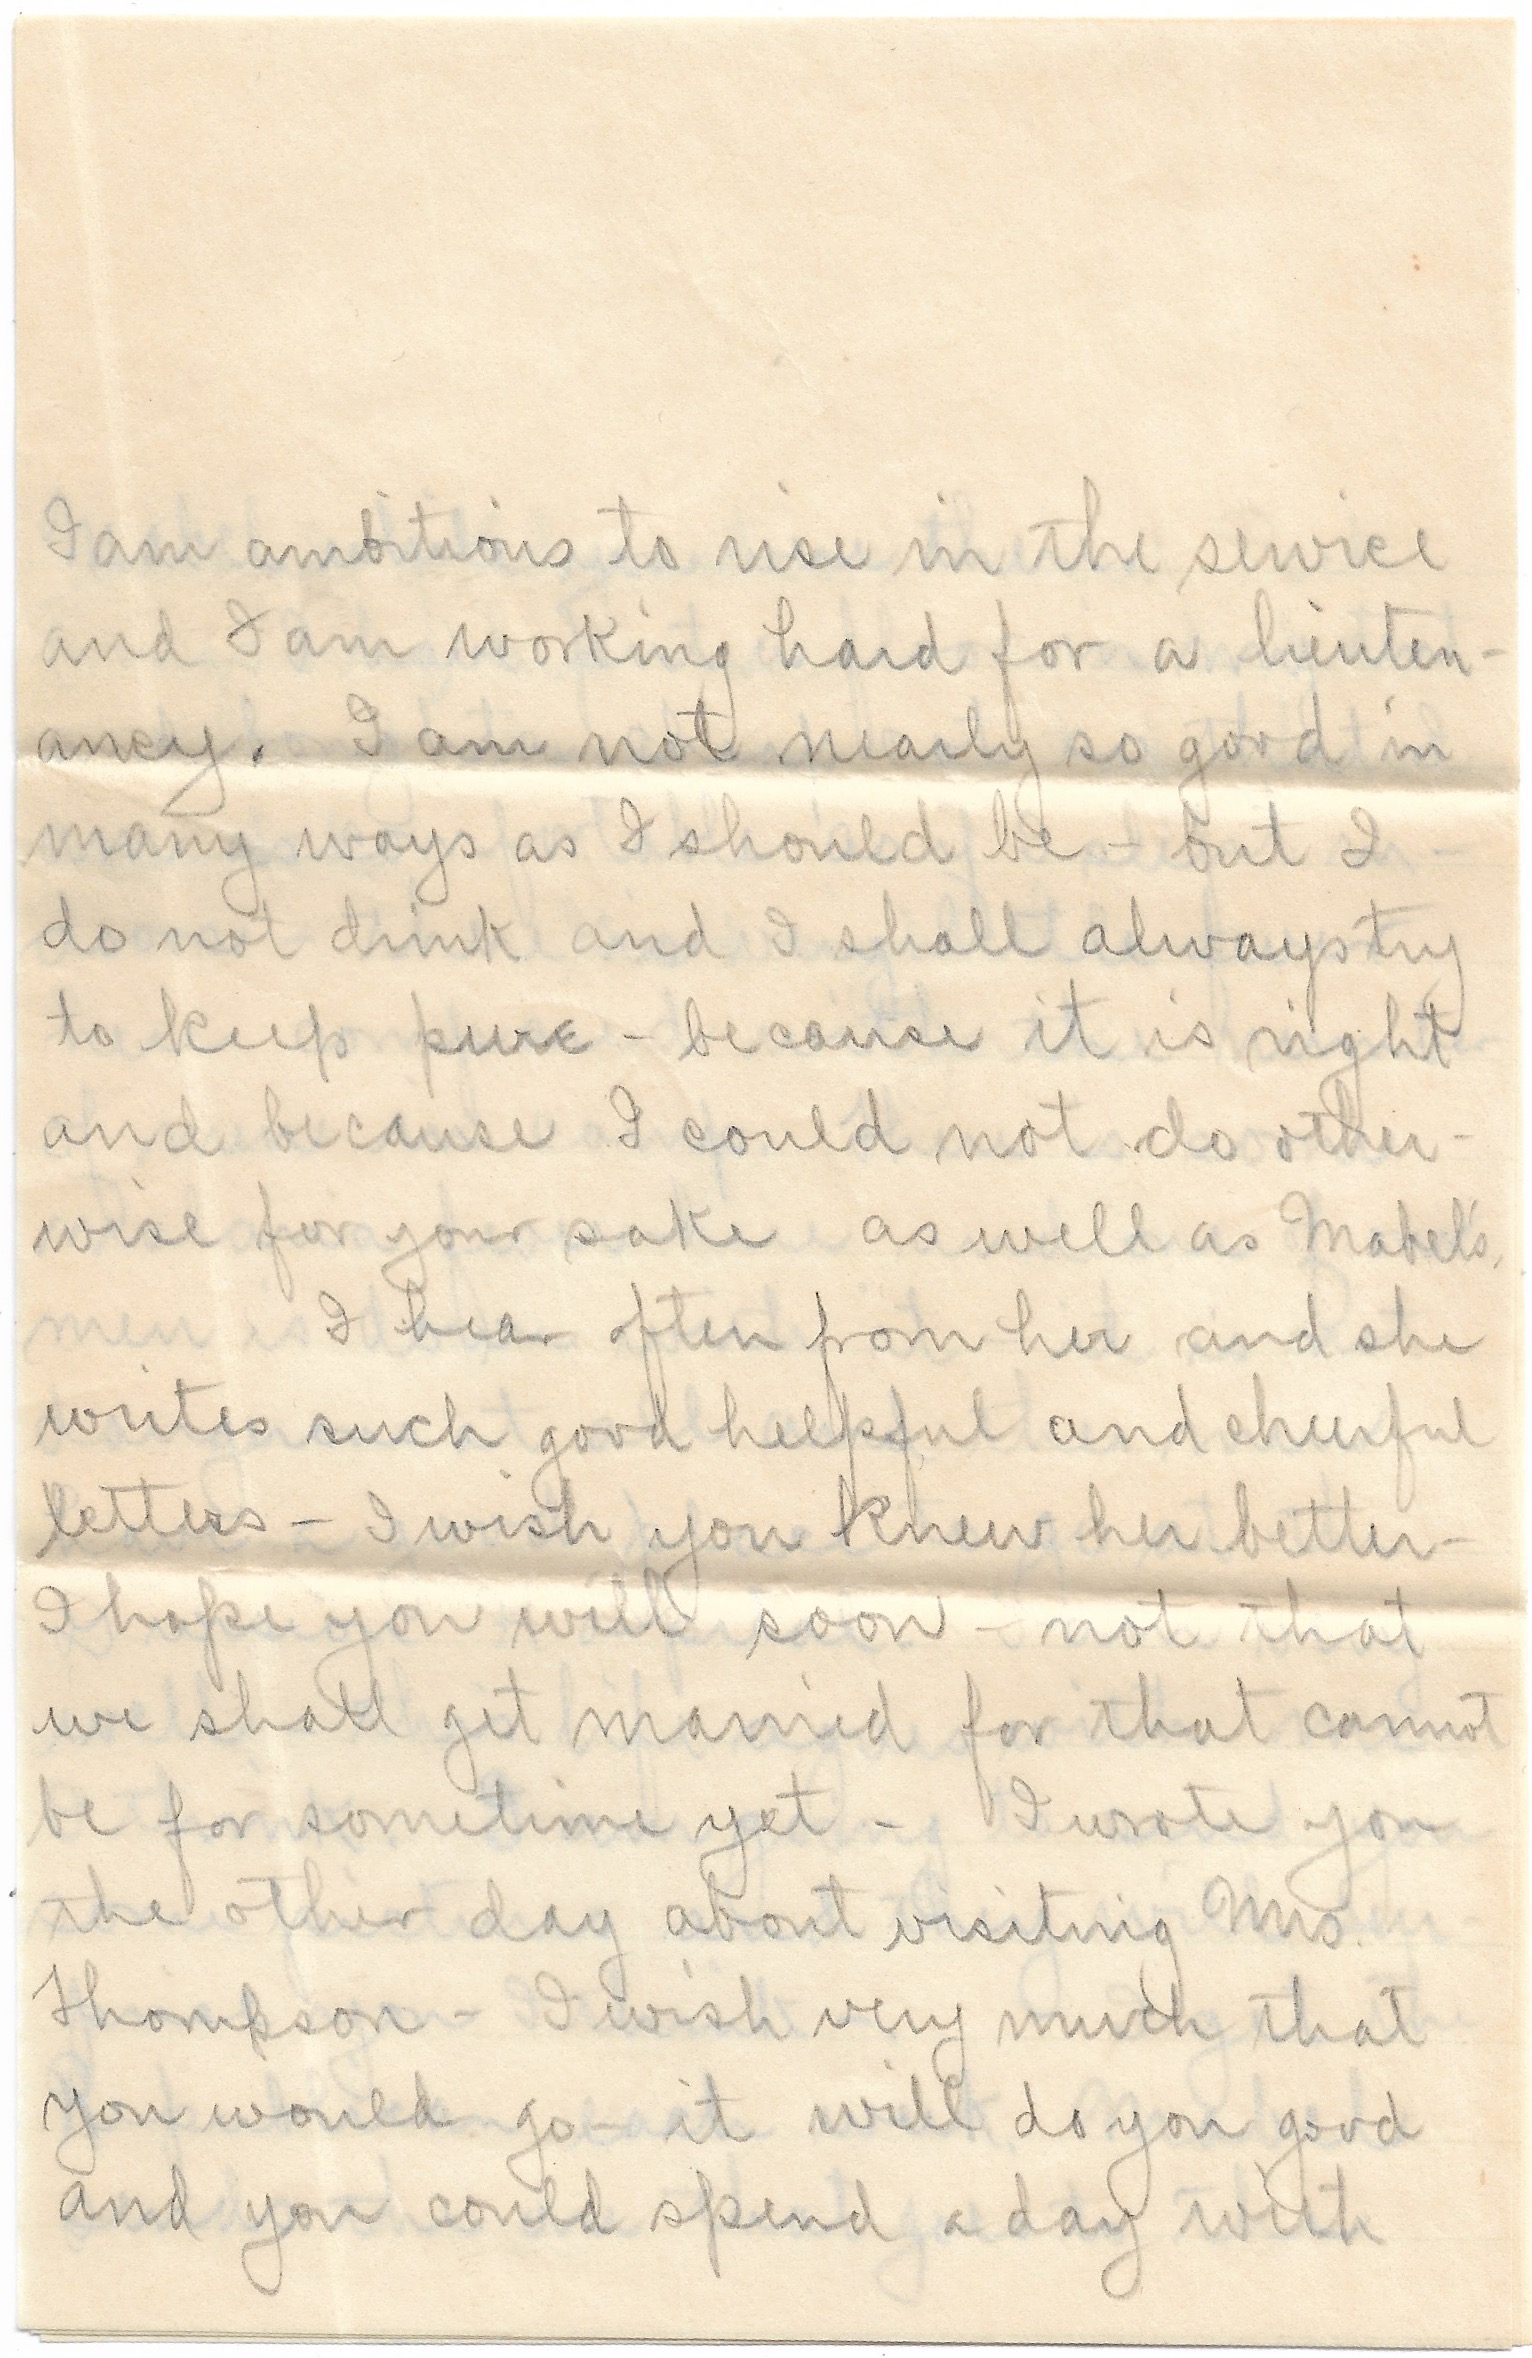 I am ambitious to rise in the service
and I am working hard for a lieuten-
ancy. I am not nearly so good in
many ways as I should be - but I
do not drink and I shall always try
to keep pure - because it is right
and because I could not do other-
wise for your sake as well as Mabel's.
I hear often from her and she
writes such good helpful and cheerful
letters - I wish you knew her better -
I hope you will soon - not that
we shall get married for that cannot
be for sometime yet - I wrote you
the other day about visiting Mrs.
Thompson - I wish very much that
you would go - it will do you good
and you could spend a day with